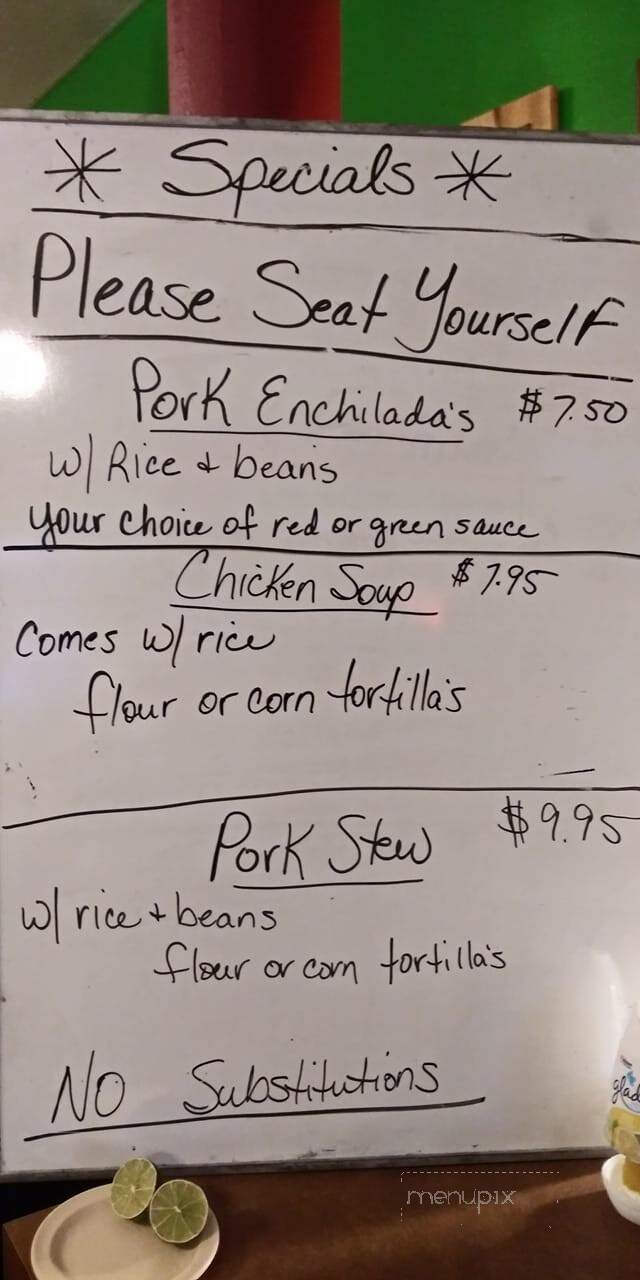 * Specials *
Please Seat Yourself
Pork Enchilada's $7.50
w/ Rice + beans
your choice of red or green sauce
Chicken Soup $7.95
Comes w/ rice
flour or corn tortilla's
Pork Stew $9.95
w/ rice + beans
flour or corn tortilla's
No Substitutions
glad
menupix